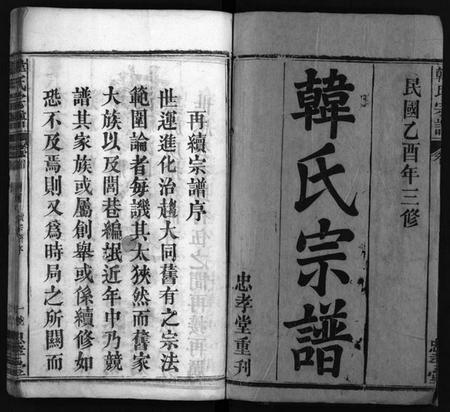 韓氏宗譜
民國乙酉年三修
韓氏宗譜
忠孝堂重刊
忠孝堂
再續宗譜序
世運進化治趨大同舊有之宗法
範圍論者每譏其太狹然而舊家
大族以及閭巷編氓近年中乃競
譜其家族或屬創舉或係續修如
恐不及焉則又爲時局之所關而